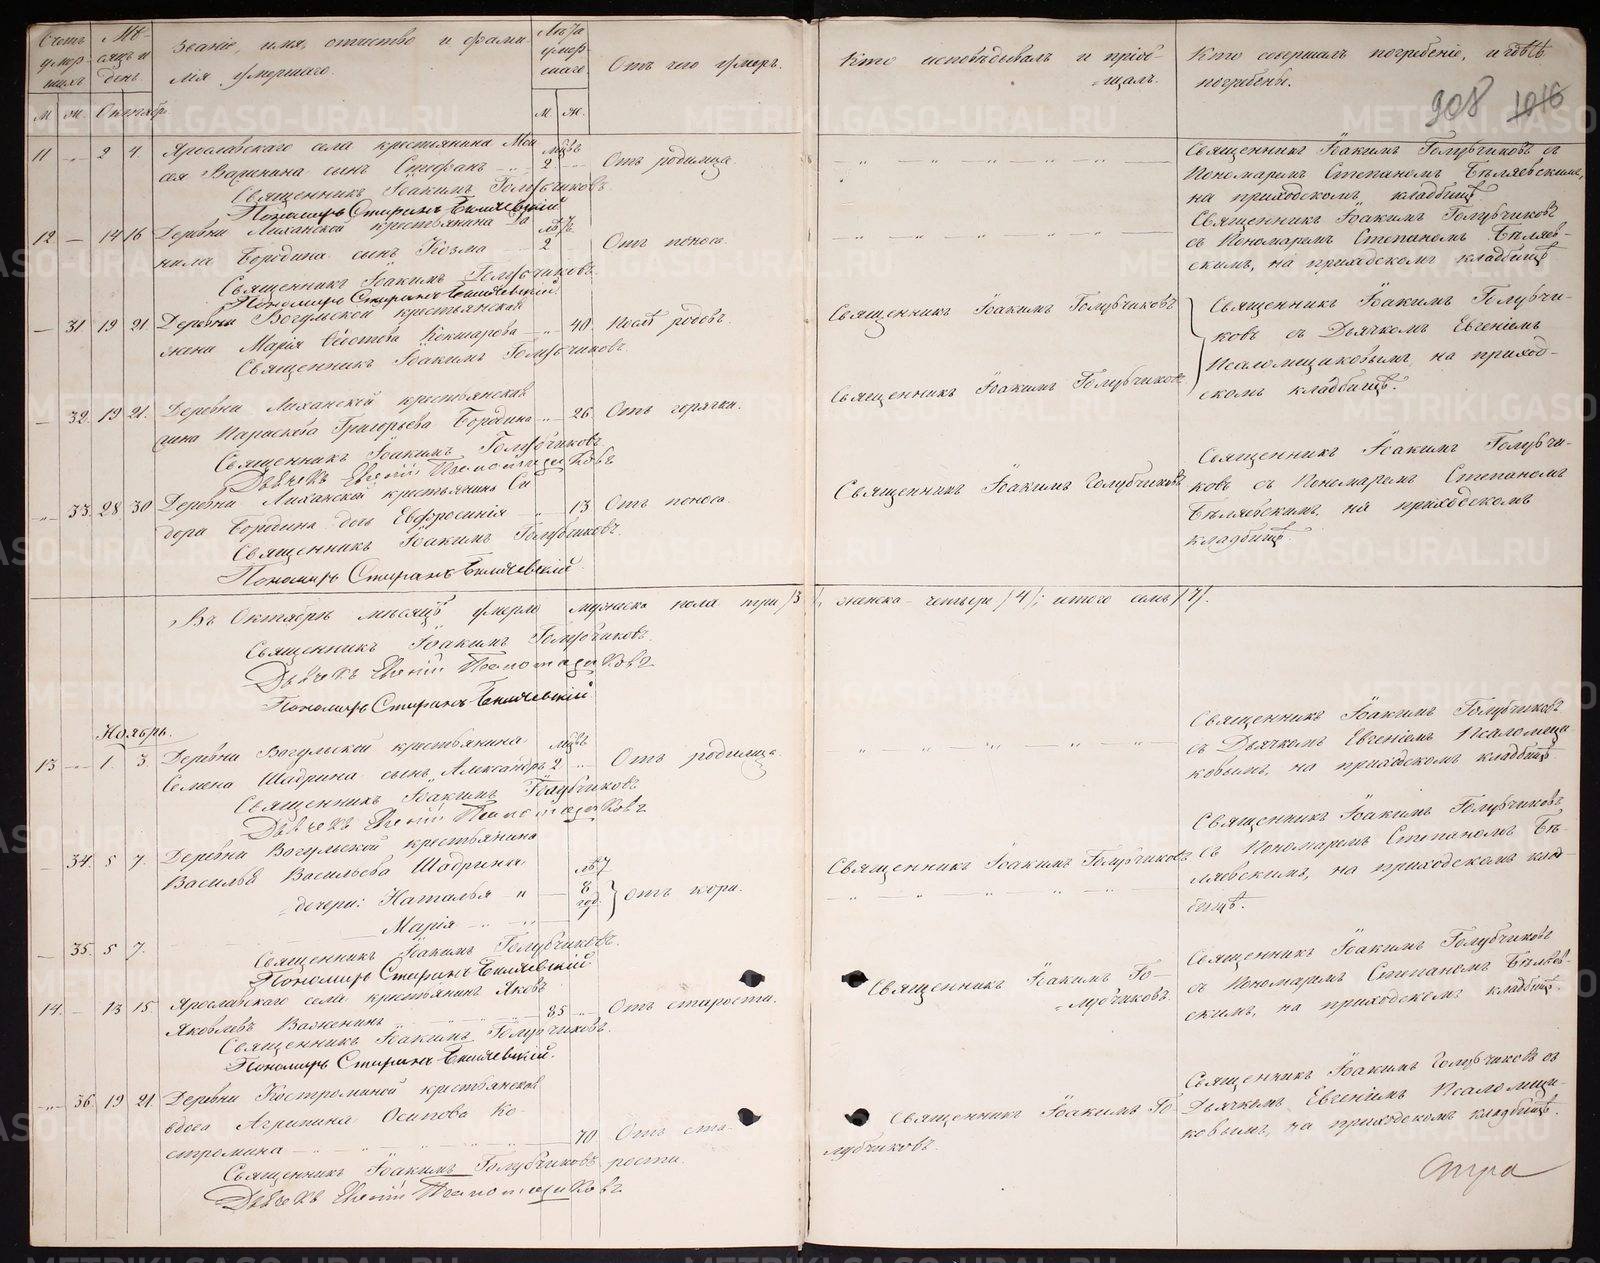 Счетъ умер-шихъ
Мѣ-сяцъ и день
Званіе, имя, отчество и фами-
лія умершаго.
Лѣта умер-шаго.
Отъ чего умеръ.
Кто исповѣдывалъ и пріоб-
щалъ.
Кто совершалъ погребеніе, и гдѣ
погребены.
908 1016
М Ж. Октябрь. М. Ж.
11 " 2 4 Ярославскаго села крестьянина Мои мѣсц.
сея Важенина сынъ Стефанъ 2 Отъ родимца
Священникъ Іоакимъ Голубчиковъ
Пономарь Стефанъ Бѣляевскій
Священникъ Іоакимъ Голубчиковъ съ
Пономаремъ Степаномъ Бѣляевскимъ,
на приходскомъ кладбищѣ
12 — 14 16 Деревни Лиханской крестьянина Да
нила Бородина сынъ Козма 2 Отъ поноса
Священникъ Іоакимъ Голубчиковъ.
Пономарь Стефанъ Бѣляевскій
Священникъ Іоакимъ Голубчиковъ
съ Пономаремъ Степаномъ Бѣляев-
скимъ, на приходскомъ кладбищѣ
— 31 19 21 Деревни Вогульской крестьянская
жена Марія Кокшарова 40. Послѣ родовъ.
Священникъ Іоакимъ Голубчиковъ.
Священникъ Іоакимъ Голубчиковъ
Священникъ Іоакимъ Голубчи-
ковъ съ Дьячкомъ Евгеніемъ
Псаломщиковымъ, на приход-
скомъ кладбищѣ.
— 32. 19 21. Деревни Лиханской крестьянская
жена Параскева Григорьева Бородина " 26. Отъ горячки.
Священникъ Іоакимъ Голубчиковъ.
Дьячекъ Евгеній Псаломщиковъ
Священникъ Іоакимъ Голубчиковъ
— 33. 28 30 Деревни Лиханской крестьянина Си
дора Бородина дочь Евфросинія 13 Отъ поноса.
Священникъ Іоакимъ Голубчиковъ.
Пономарь Стефанъ Бѣляевскій
Священникъ Іоакимъ Голубчиковъ
Священникъ Іоакимъ Голубчи-
ковъ съ Пономаремъ Степаномъ
Бѣляевскимъ, на приходскомъ
кладбищѣ.
Въ Октябрѣ мѣсяцѣ умерло мужеска пола три /3/, женска - четыре /4/; итого семь /7/.
Священникъ Іоакимъ Голубчиковъ.
Дьячекъ Евгеній Псаломщиковъ
Пономарь Стефанъ Бѣляевскій
Ноябрь.
13 — 1. 3. Деревни Вогульской крестьянина мѣсц.
Семена Шадрина сынъ Александръ 2 Отъ родимца.
Священникъ Іоакимъ Голубчиковъ
Дьячекъ Евгеній Псаломщиковъ
Священникъ Іоакимъ Голубчиковъ
съ Дьячкомъ Евгеніемъ Псаломщи-
ковымъ, на приходскомъ кладбищѣ
— 34. 5 7. Деревни Вогульской крестьянина
Василья Васильева Шадрина
дочери: Наталья " 8 год. Отъ кори.
Марія
— 35. 5 7.
Священникъ Іоакимъ Голубчиковъ.
Пономарь Стефанъ Бѣляевскій
Священникъ Іоакимъ Голубчиковъ
Священникъ Іоакимъ Голубчиковъ
съ Пономаремъ Степаномъ Бѣ-
ляевскимъ, на приходскомъ клад-
бищѣ.
14. — 13 15. Ярославскаго села крестьянинъ Яковъ
Яковлевъ Важенинъ 85 Отъ старости.
Священникъ Іоакимъ Голубчиковъ.
Пономарь Стефанъ Бѣляевскій.
Священникъ Іоакимъ Го-
лубчиковъ.
Священникъ Іоакимъ Голубчиковъ
съ Пономаремъ Степаномъ Бѣляев-
скимъ, на приходскомъ кладбищѣ.
— 36. 19 21. Деревни Костроминой крестьянская
вдова Агрипина Осипова Ко-
стромина 70 Отъ ста-
рости.
Священникъ Іоакимъ Голубчиковъ
Дьячекъ Евгеній Псаломщиковъ
Священникъ Іоакимъ Го-
лубчиковъ.
Священникъ Іоакимъ Голубчиковъ съ
Дьячкомъ Евгеніемъ Псаломщи-
ковымъ, на приходскомъ кладбищѣ.
METRIKI.GASO-URAL.RU